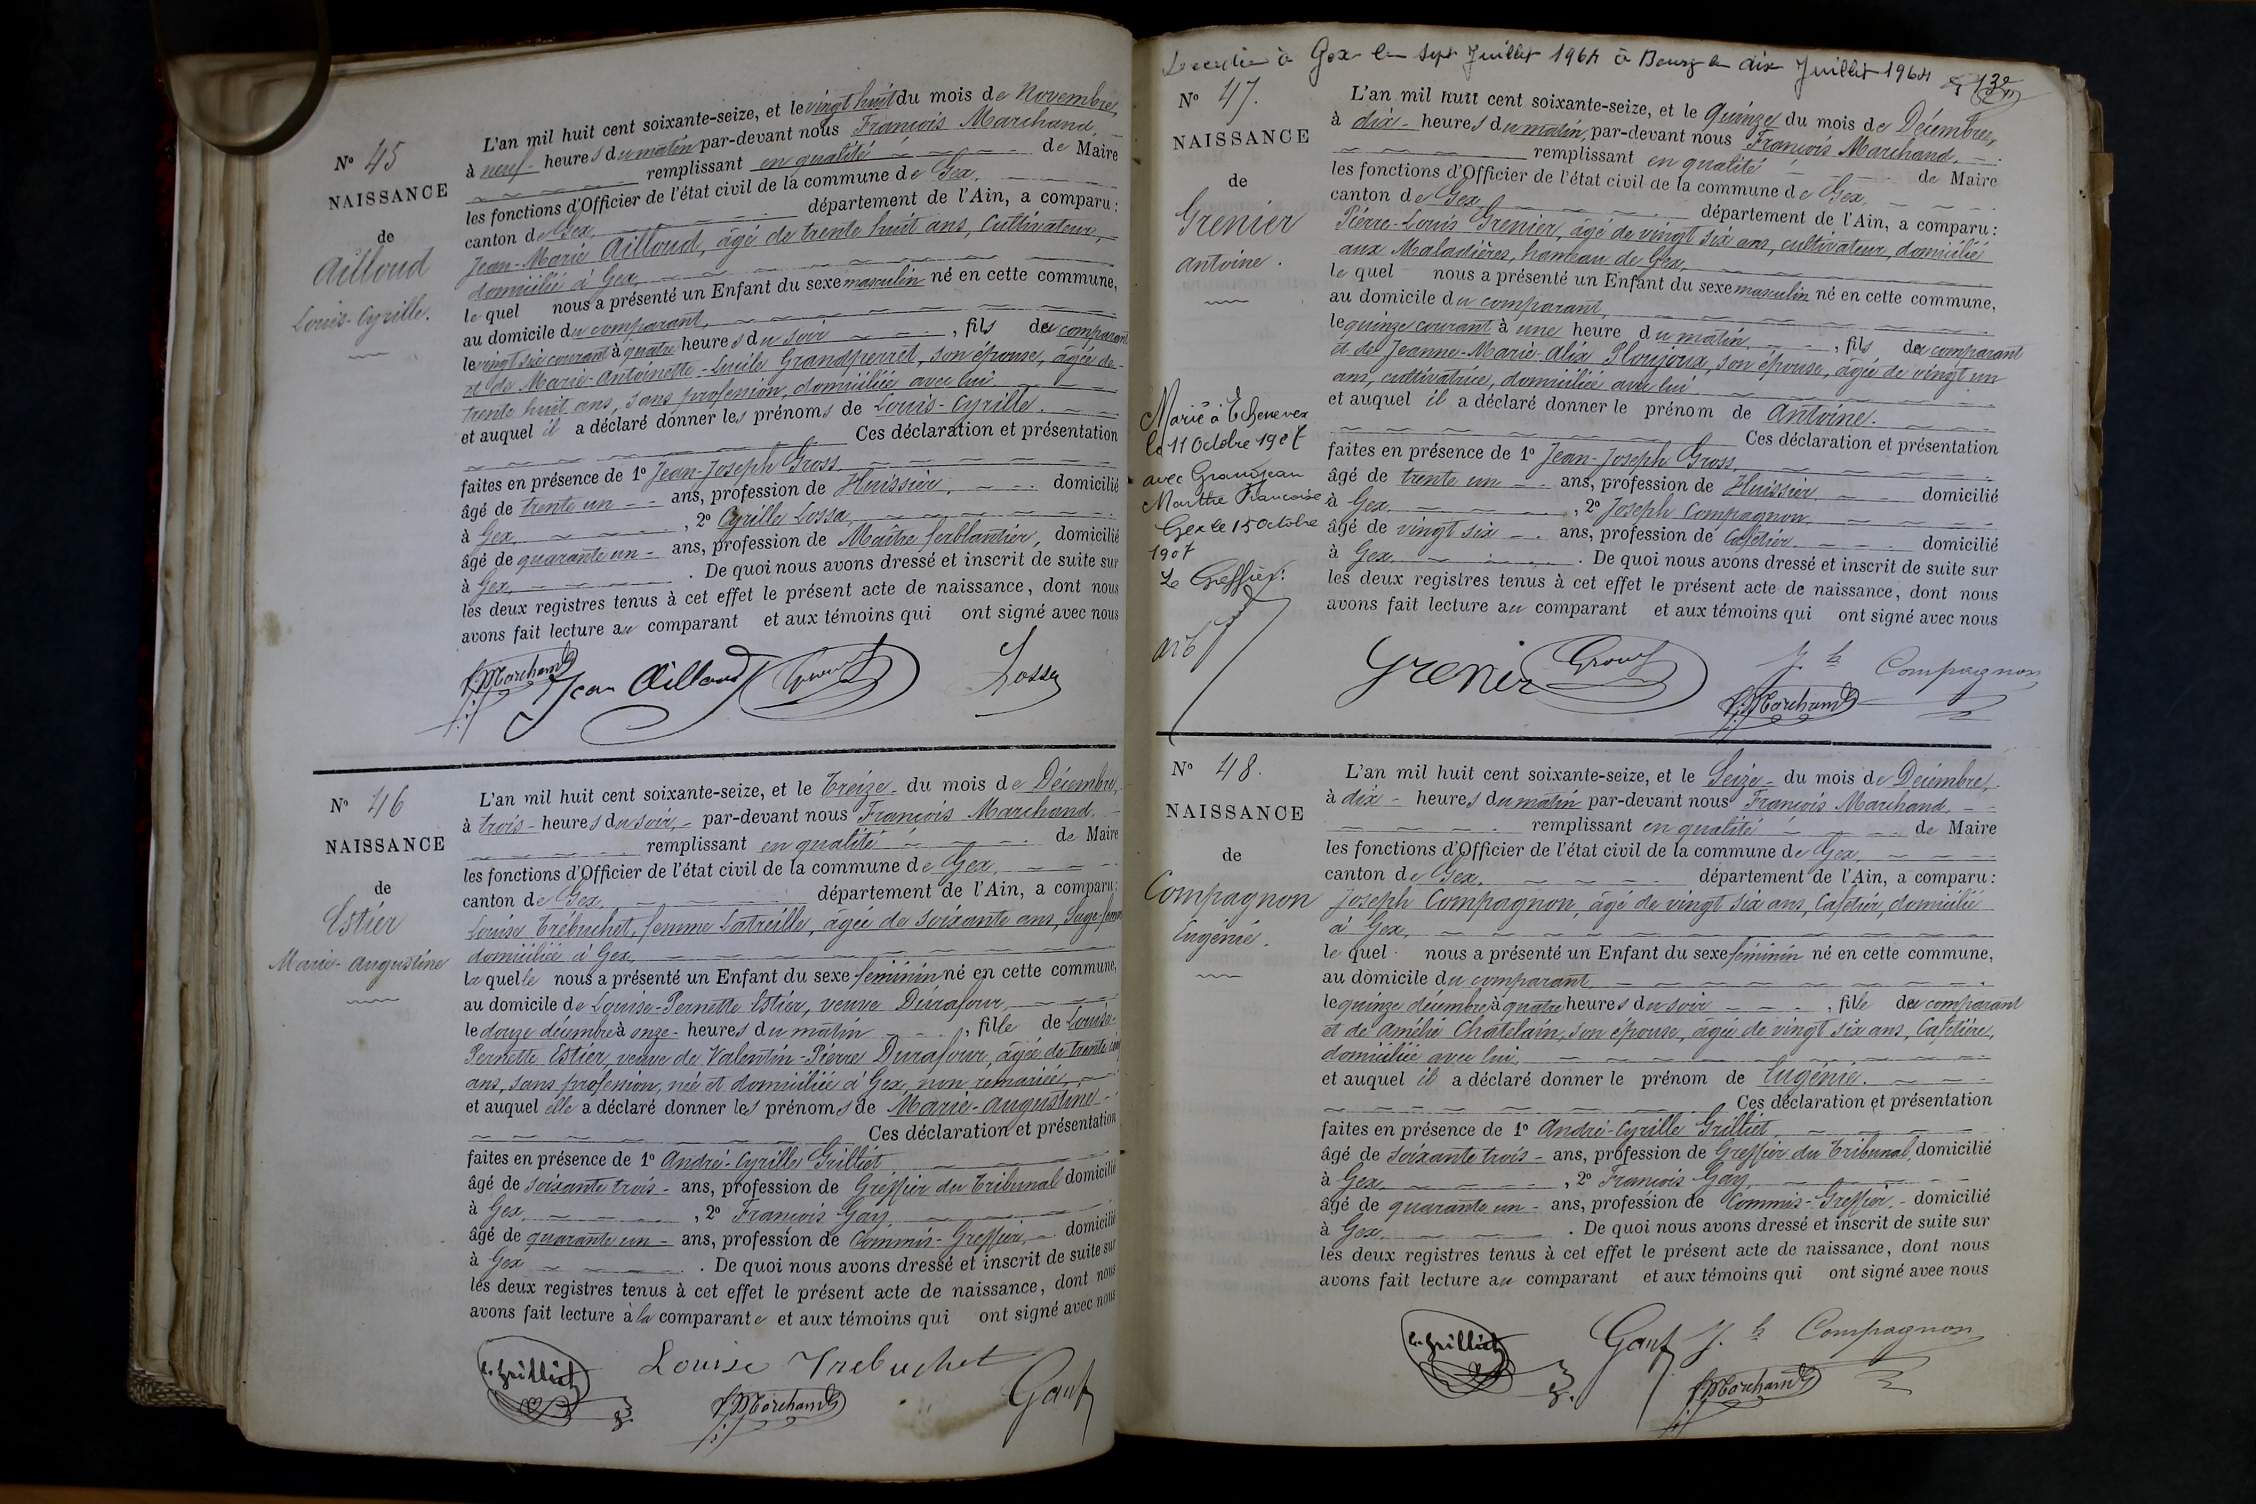 N° 45
NAISSANCE
de
Ailloud
Louis-Cyrille.
L'an mil huit cent soixante-seize, et le vingt huit du mois de Novembre,
à neuf heures du matin par-devant nous François Marchand,
remplissant en qualité de Maire
les fonctions d'Officier de l'état civil de la commune de Gex,
canton de Gex, département de l'Ain, a comparu :
Jean-Marie Ailloud, âgé de trente huit ans, Cultivateur,
domicilié à Gex,
le quel nous a présenté un Enfant du sexe masculin né en cette commune,
au domicile du comparant,
le vingt six courant à quatre heures du soir, fils du comparant
et de Marie-Antoinette-Lucile Grandperret, son épouse, âgée de
trente huit ans, sans profession, domiciliée avec lui
et auquel il a déclaré donner les prénoms de Louis-Cyrille.
Ces déclaration et présentation
faites en présence de 1° Jean-Joseph Gross
âgé de trente un ans, profession de Huissier, domicilié
à Gex, 2° Cyrille Lossa,
âgé de quarante un ans, profession de Maître ferblantier, domicilié
à Gex, . De quoi nous avons dressé et inscrit de suite sur
les deux registres tenus à cet effet le présent acte de naissance, dont nous
avons fait lecture au comparant et aux témoins qui ont signé avec nous
F. Marchand Jean Ailloud Gross Lossa
N° 46
NAISSANCE
de
Estier
Marie-Augustine
L'an mil huit cent soixante-seize, et le Treize du mois de Décembre,
à trois heures du soir, par-devant nous François Marchand
remplissant en qualité de Maire
les fonctions d'Officier de l'état civil de la commune de Gex,
canton de Gex, département de l'Ain, a comparu :
Louise Trébuchet, femme Latreille, âgée de soixante ans, Sage-femme
domiciliée à Gex,
la quelle nous a présenté un Enfant du sexe féminin né en cette commune,
au domicile de Louise-Pernette Estier, veuve Durafour,
le douze décembre à onze heures du matin, fille de Louise-
Pernette Estier, veuve de Valentin-Pierre Durafour, âgée de trente cinq
ans, sans profession, née et domiciliée à Gex, non remariée,
et auquel elle a déclaré donner les prénoms de Marie-Augustine
Ces déclaration et présentation
faites en présence de 1° André-Cyrille Grilliet
âgé de soixante trois ans, profession de Greffier du Tribunal domicilié
à Gex, 2° François Gay,
âgé de quarante un ans, profession de Commis-Greffier, domicilié
à Gex . De quoi nous avons dressé et inscrit de suite sur
les deux registres tenus à cet effet le présent acte de naissance, dont nous
avons fait lecture à la comparante et aux témoins qui ont signé avec nous
C. Grilliet Louise Trebuchet F. Marchand Gay
Decedé à Gex le sept Juillet 1964 à Bourg le dix Juillet 1964
N° 47.
NAISSANCE
de
Grenier
Antoine.
Marié à Echenevex
le 11 Octobre 1907
avec Grandjean
Marthe Francoise
Gex le 15 Octobre
1907
Le Greffier:
L'an mil huit cent soixante-seize, et le Quinze du mois de Décembre,
à dix heures du matin, par-devant nous François Marchand,
remplissant en qualité de Maire
les fonctions d'Officier de l'état civil de la commune de Gex,
canton de Gex, département de l'Ain, a comparu :
Pierre-Louis Grenier, âgé de vingt six ans, cultivateur, domicilié
aux Maladières, hameau de Gex,
le quel nous a présenté un Enfant du sexe masculin né en cette commune,
au domicile du comparant,
le quinze courant à une heure du matin, fils du comparant
et de Jeanne-Marie-Alix Ploujoux, son épouse, âgée de vingt un
ans, cultivatrice, domiciliée avec lui
et auquel il a déclaré donner le prénom de Antoine.
Ces déclaration et présentation
faites en présence de 1° Jean-Joseph Gross,
âgé de trente un ans, profession de Huissier domicilié
à Gex, 2° Joseph Compagnon,
âgé de vingt six ans, profession de Cafetier domicilié
à Gex, . De quoi nous avons dressé et inscrit de suite sur
les deux registres tenus à cet effet le présent acte de naissance, dont nous
avons fait lecture au comparant et aux témoins qui ont signé avec nous
Grenier Gross Jh Compagnon
F. Marchand
N° 48.
NAISSANCE
de
Compagnon
Eugénie.
L'an mil huit cent soixante-seize, et le Seize du mois de Décembre,
à dix heures du matin par-devant nous François Marchand
remplissant en qualité de Maire
les fonctions d'Officier de l'état civil de la commune de Gex,
canton de Gex, département de l'Ain, a comparu :
Joseph Compagnon, âgé de vingt six ans, Cafetier, domicilié
à Gex,
le quel nous a présenté un Enfant du sexe féminin né en cette commune,
au domicile du comparant
le quinze décembre à quatre heures du soir, fille du comparant
et de Amélie Chatelain, son épouse, âgée de vingt six ans, Cafetière,
domiciliée avec lui,
et auquel il a déclaré donner le prénom de Eugénie.
Ces déclaration et présentation
faites en présence de 1° André-Cyrille Grilliet,
âgé de soixante trois ans, profession de Greffier du Tribunal, domicilié
à Gex, 2° François Gay,
âgé de quarante un ans, profession de Commis-Greffier domicilié
à Gex, . De quoi nous avons dressé et inscrit de suite sur
les deux registres tenus à cet effet le présent acte de naissance, dont nous
avons fait lecture au comparant et aux témoins qui ont signé avec nous
C. Grilliet Gay Jh Compagnon
F. Marchand